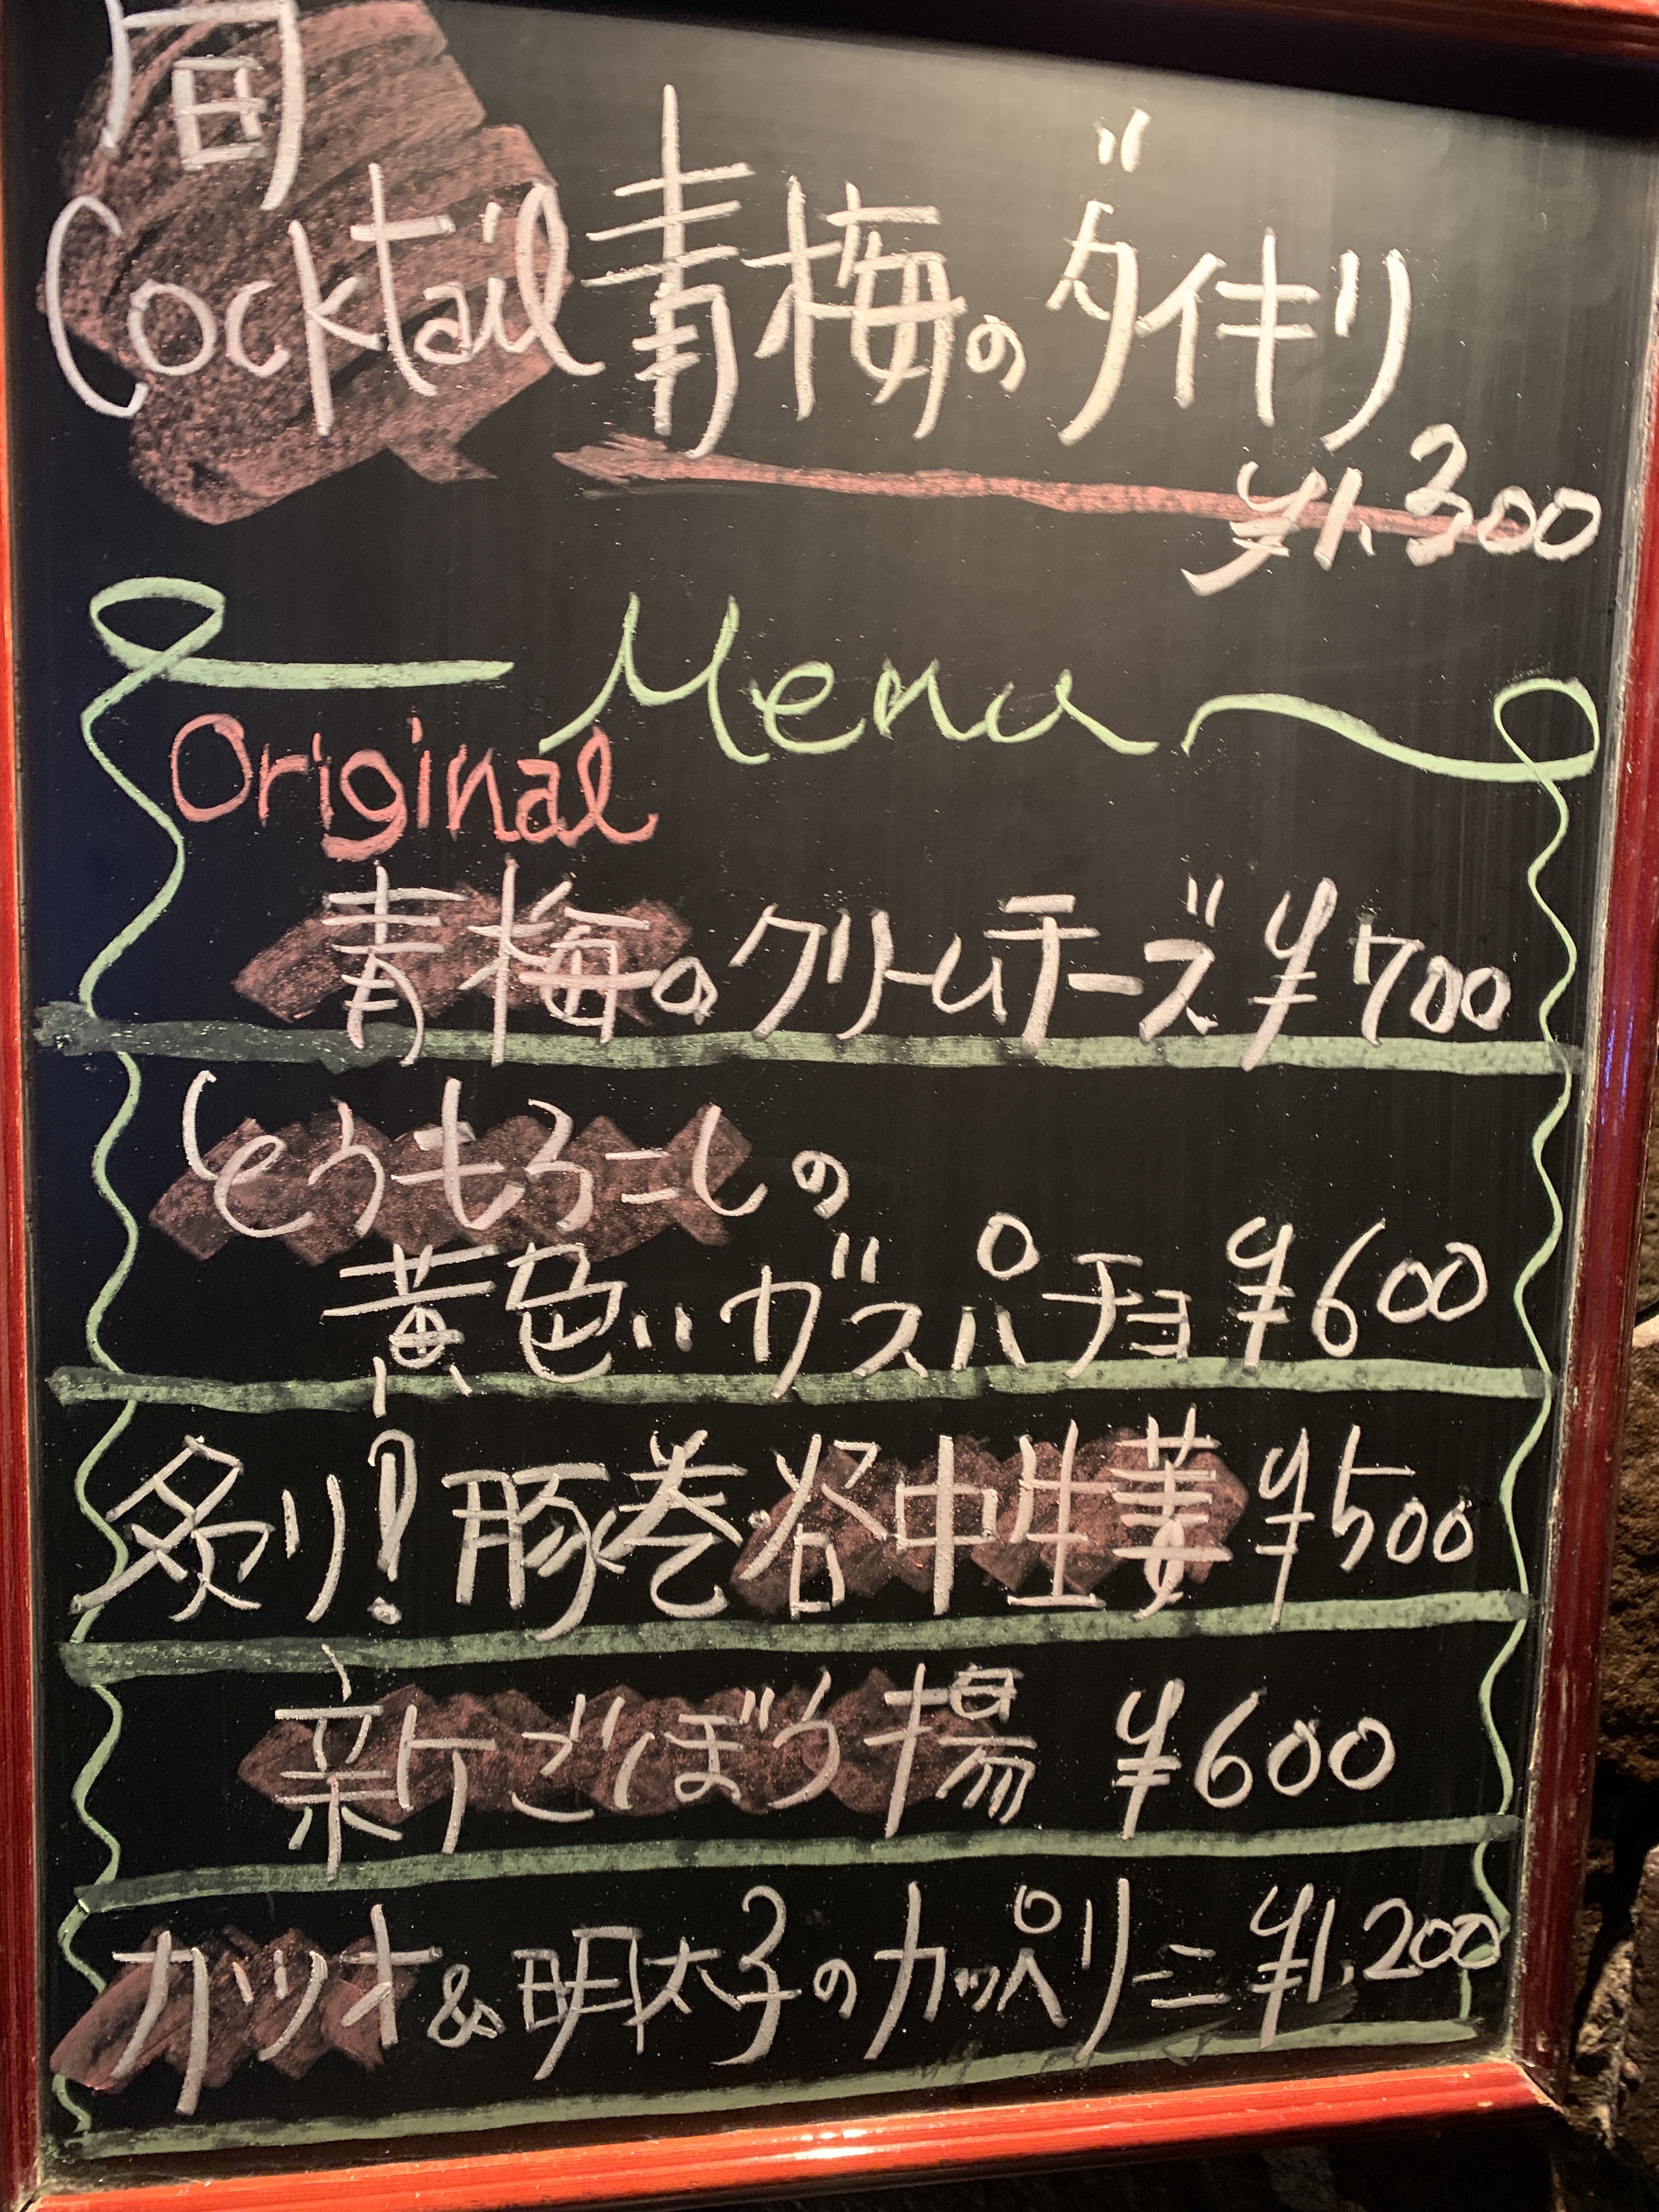 旬
Cocktail 青梅のダイキリ
¥1,300
Menu
Original
青梅のクリームチーズ ¥700
とうもろこしの
黄色いガスパチョ ¥600
炙り!豚巻谷中生姜 ¥500
新ごぼう揚 ¥600
カツオ&明太子のカッペリーニ ¥1,200